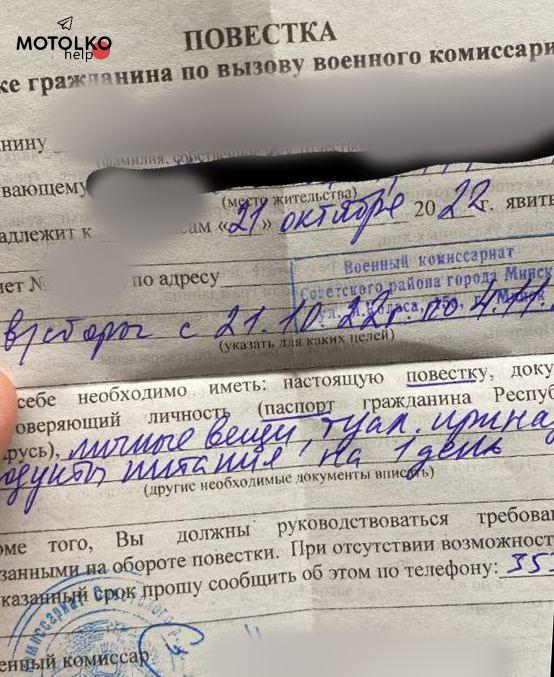 MOTOLKO
help
ПОВЕСТКА
ке гражданина по вызову военного комиссари
нину
(фамилия, собственное имя, отчество
вающему
(место жительства)
адлежит к сам «21» октября 2022 г. явить
Военный комиссариат
Советского района города Минск
нет № по адресу
в/сборы с 21.10.22г. по 4.11.
(указать для каких целей)
себе необходимо иметь: настоящую повестку, доку
оверяющий личность (паспорт гражданина Респуб
арусь), личные вещи, туал. принад
одукты питания на 1 день
(другие необходимые документы вписать)
оме того, Вы должны руководствоваться требован
занными на обороте повестки. При отсутствии возможност
казанный срок прошу сообщить об этом по телефону: 35
енный комиссар